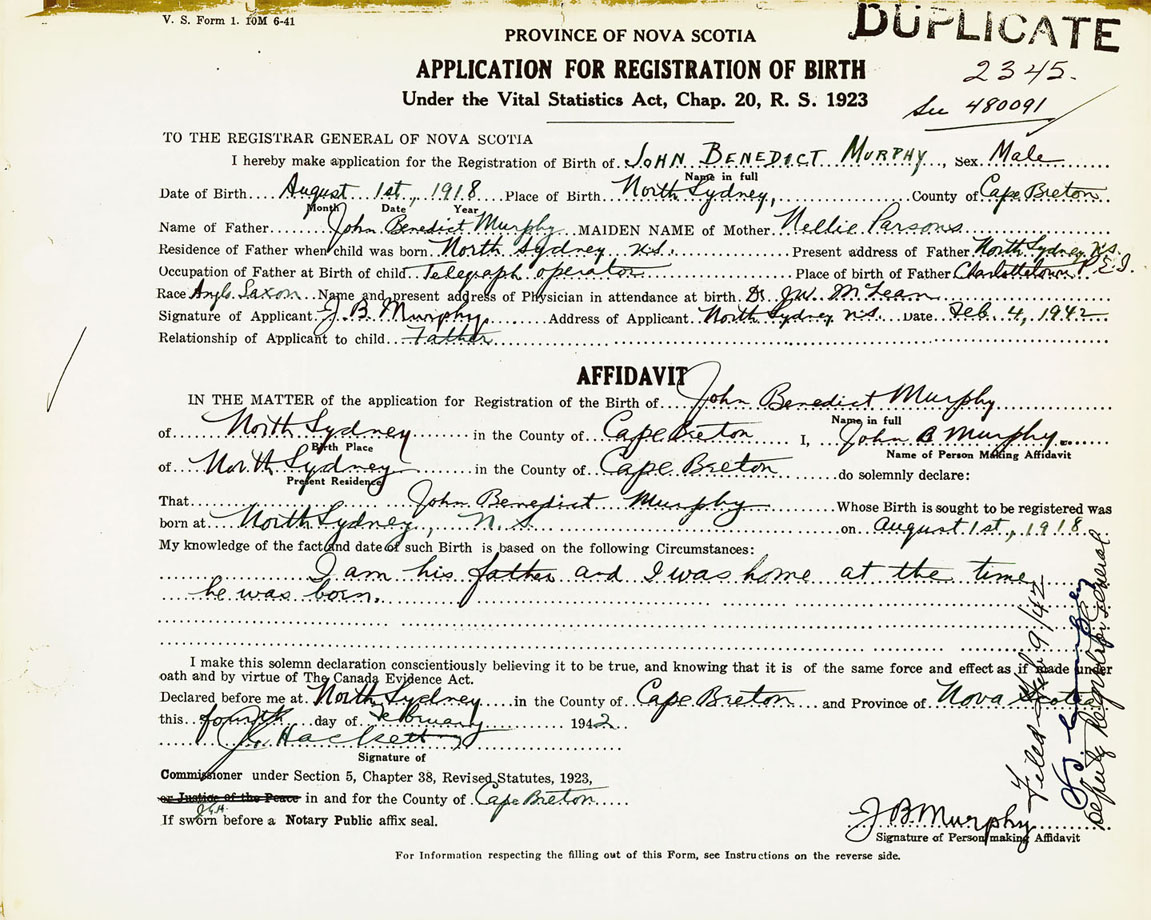 V. S. Form 1. 10M 6-41
DUPLICATE
PROVINCE OF NOVA SCOTIA
2345.
APPLICATION FOR REGISTRATION OF BIRTH
Under the Vital Statistics Act, Chap. 20, R. S. 1923
See 480091
TO THE REGISTRAR GENERAL OF NOVA SCOTIA
I hereby make application for the Registration of Birth of JOHN BENEDICT MURPHY, Sex Male
Name in full
Date of Birth August 1st, 1918 Place of Birth North Sydney, County of Cape Breton
Month Date Year
Name of Father John Benedict Murphy MAIDEN NAME of Mother Nellie Parsons
Residence of Father when child was born North Sydney N.S. Present address of Father North Sydney N.S.
Occupation of Father at Birth of child Telegraph operator Place of birth of Father Charlottetown P.E.I.
Race Anglo Saxon Name and present address of Physician in attendance at birth Dr JW. McLean
Signature of Applicant J. B. Murphy Address of Applicant North Sydney N.S. Date Feb. 4, 1942
Relationship of Applicant to child Father
AFFIDAVIT
IN THE MATTER of the application for Registration of the Birth of John Benedict Murphy
Name in full
of North Sydney in the County of Cape Breton I, John B Murphy
Birth Place Name of Person Making Affidavit
of North Sydney in the County of Cape Breton do solemnly declare:
Present Residence
That John Benedict Murphy Whose Birth is sought to be registered was
born at North Sydney, N.S. on August 1st, 1918
My knowledge of the fact and date of such Birth is based on the following Circumstances:
I am his father and I was home at the time
he was born.
I make this solemn declaration conscientiously believing it to be true, and knowing that it is of the same force and effect as if made under
oath and by virtue of The Canada Evidence Act.
Declared before me at North Sydney in the County of Cape Breton and Province of Nova Scotia
this fourth day of February 1942
Hackett
Signature of
Commissioner under Section 5, Chapter 38, Revised Statutes, 1923,
or Justice of the Peace in and for the County of Cape Breton
If sworn before a Notary Public affix seal.
J B Murphy
Signature of Person making Affidavit
For Information respecting the filling out of this Form, see Instructions on the reverse side.
Filed Feb 9/42
Deputy Registrar General